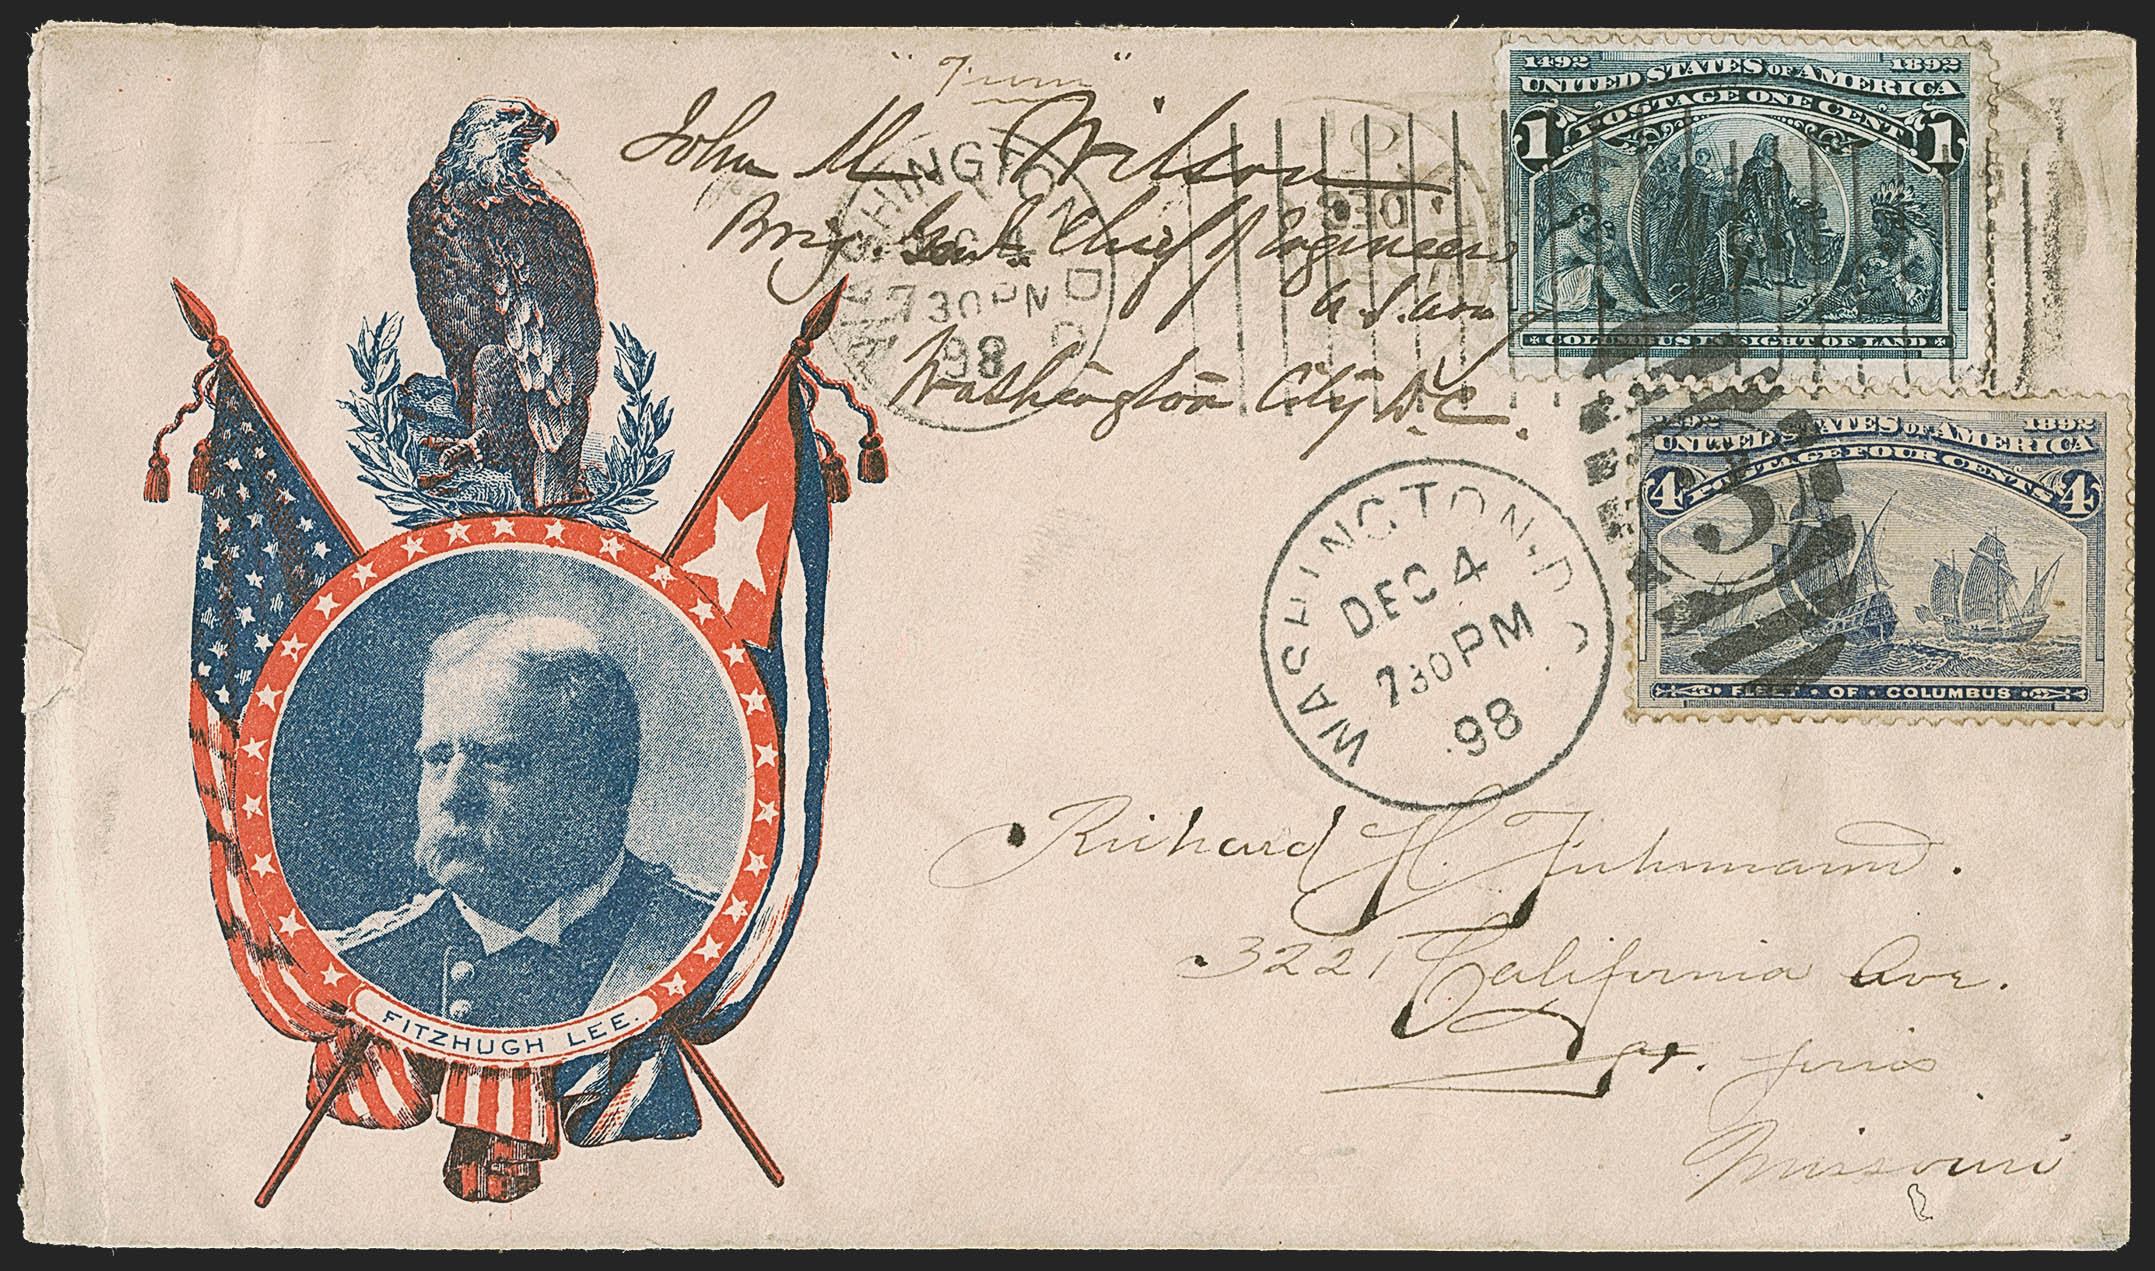 "From"
John M. Wilson
Brig. Genl. Chief of Engineers
U.S. Army
Washington City D.C.
WASHINGTON D
DEC 4
730 PM
98
1492 1892
UNITED STATES OF AMERICA
POSTAGE ONE CENT
1 1
COLUMBUS IN SIGHT OF LAND
1492 1892
UNITED STATES OF AMERICA
POSTAGE FOUR CENTS
4 4
FLEET · OF · COLUMBUS
3
WASHINGTON, D.C.
DEC 4
730 PM
98
FITZHUGH LEE.
Richard H. Fuhrmann.
3221 California Ave.
St. Louis
Missouri